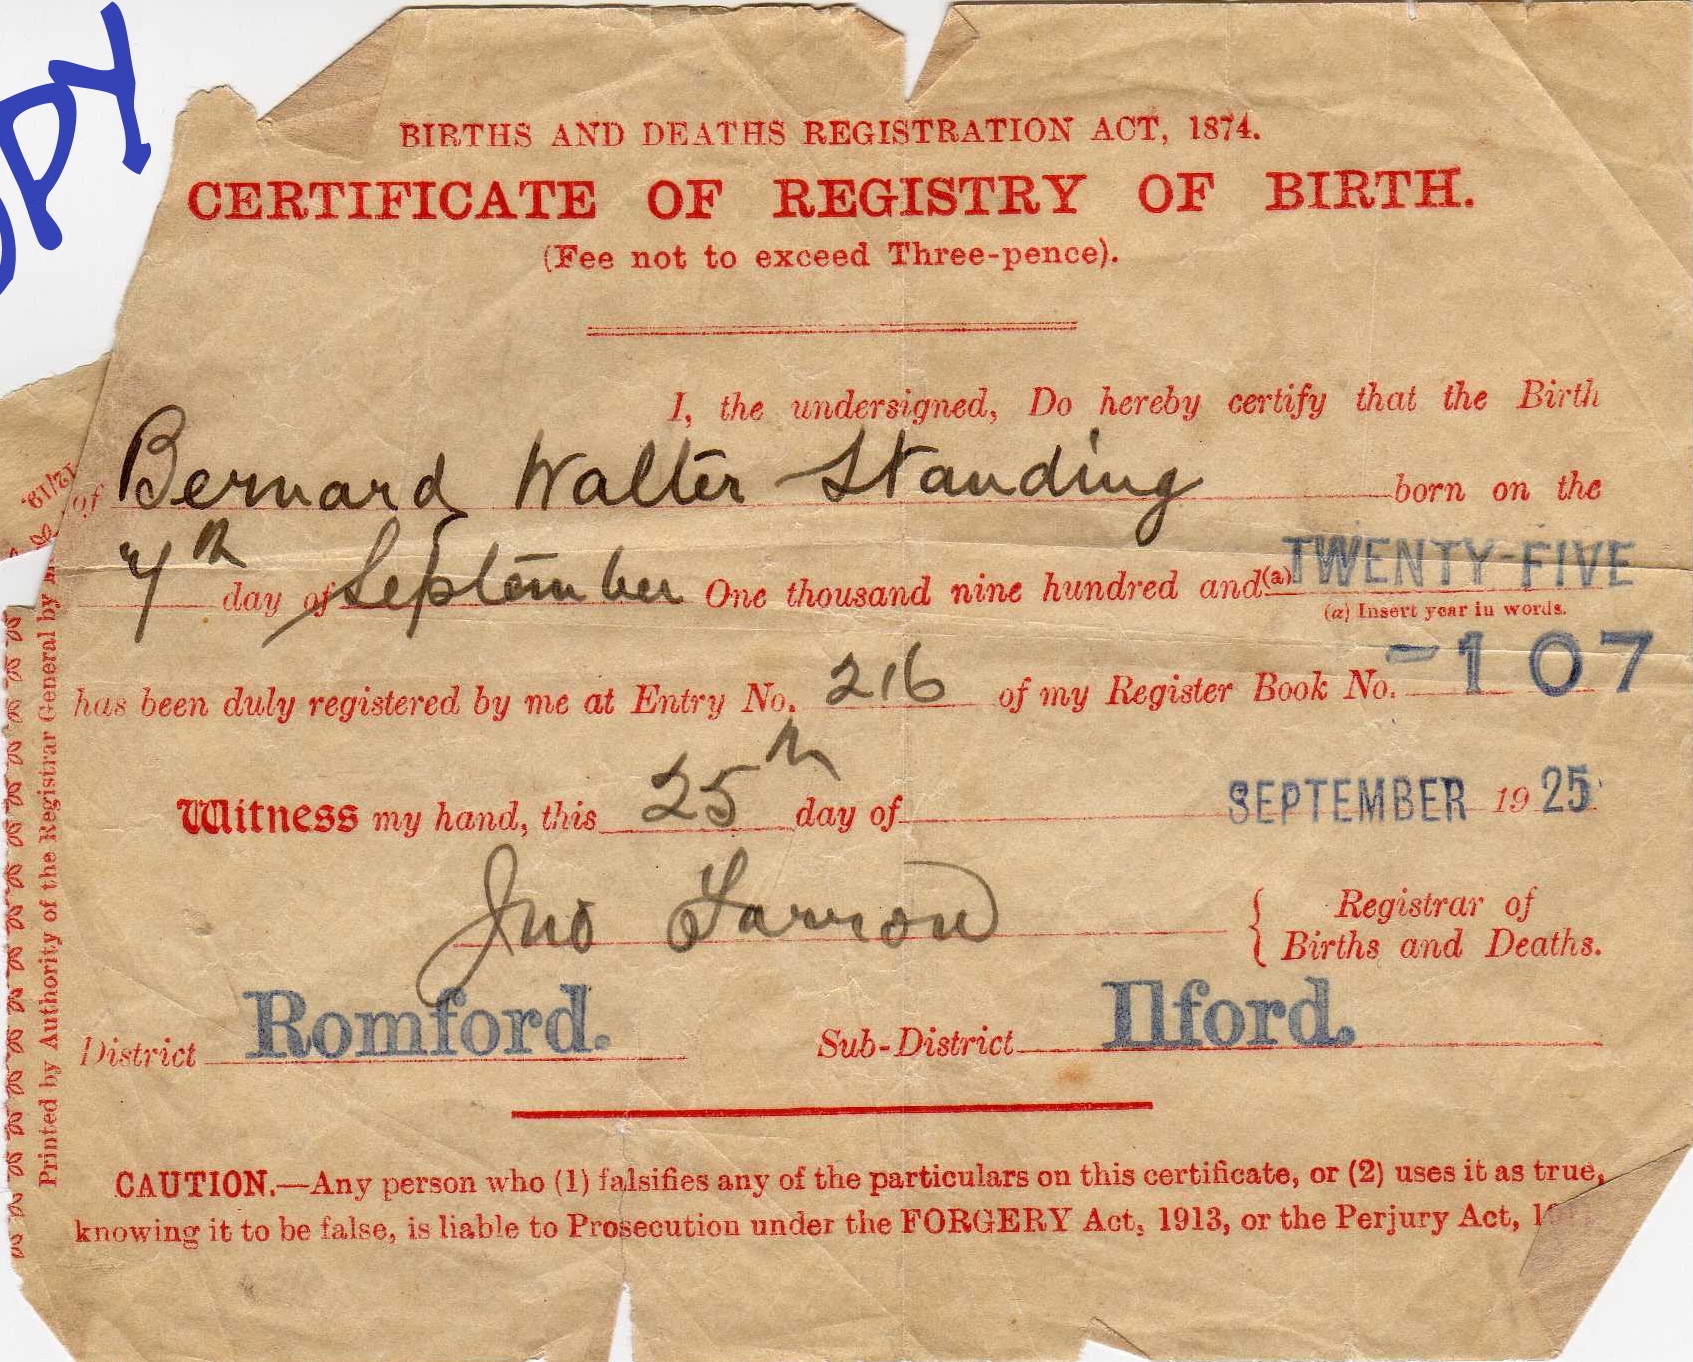 OPY
BIRTHS AND DEATHS REGISTRATION ACT, 1874.
CERTIFICATE OF REGISTRY OF BIRTH.
(Fee not to exceed Three-pence).
I, the undersigned, Do hereby certify that the Birth
of Bernard Walter Standing born on the
7th day of September One thousand nine hundred and (a) TWENTY-FIVE
(a) Insert year in words.
has been duly registered by me at Entry No. 216 of my Register Book No. -107
Witness my hand, this 25th day of SEPTEMBER 1925
Jno
Registrar of
Births and Deaths.
District Romford. Sub-District Ilford.
CAUTION.—Any person who (1) falsifies any of the particulars on this certificate, or (2) uses it as true,
knowing it to be false, is liable to Prosecution under the FORGERY Act, 1913, or the Perjury Act, 1911.
Printed by Authority of the Registrar General by
12/19.